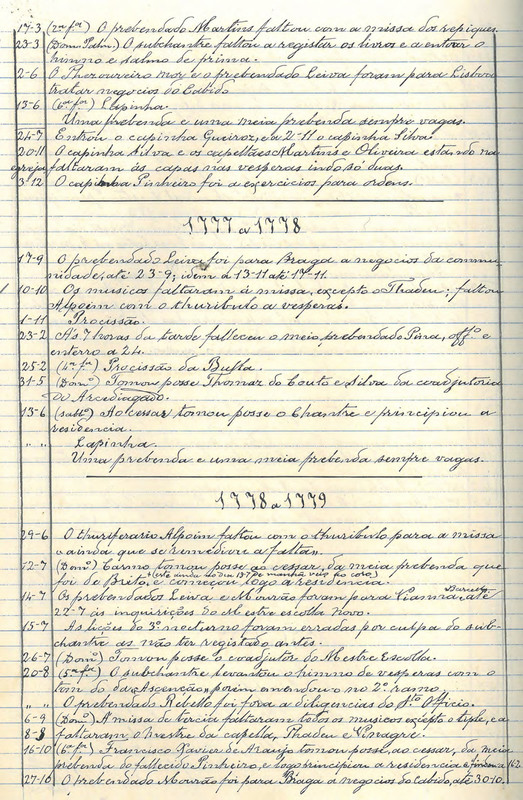 17-3 (2ª fª) O prebendado Martins faltou com a missa dos repiques.
23-3 (Dom. Palm.) O subchantre faltou a registar os livros e a entoar o
himno e salmo de prima.
2-6 O Thezoureiro mor e o prebendado Leiva foram para Lisboa
tratar negocios do Cabido
13-6 (6ª fª) Lapinha.
Uma prebenda e uma meia prebenda sempre vagas.
24-7 Entrou o capinha Queiroz, e a 2-11 o capinha Silva
20-11 O capinha Silva e os capellães Martins e Oliveira estando na
egreja faltaram ás capas nas vesperas indo só duas.
3-12 O capinha Pinheiro foi a exercicios para ordens.
1777 a 1778
17-9 O prebendado Leiva foi para Braga a negocios da commu-
nidade, até 23-9; idem a 13-11 até 17-11.
10-10 Os musicos faltaram á missa, excepto o Thadeu; faltou
Alpoim com o thuribulo a vesperas.
1-11 Procissão.
23-2 A's 7 horas da tarde falleceu o meio prebendado Pina, offº e
enterro a 24.
25-2 (4ª fª) Procissão da Bulla.
31-5 (Domº) Tomou posse Thomaz do Couto e Silva da coadjutoria
do Arcediagado.
13-6 (sabbº) Ao cessar tomou posse o Chantre e principiou a
residencia.
" " Lapinha.
Uma prebenda e uma meia prebenda sempre vagas.
1778 a 1779
29-6 O thuriferario Alpoim faltou com o thuribulo para a missa
"ainda que se remedivre a falta".
12-7 (Domº) Carmo tomou posse ao cessar, da meia prebenda que
foi de Brito, e começou logo a residencia.
14-7 Os prebendados Leiva e Mourão foram para Vianna, até
22-7 ás inquirições do Mestre escolla novo.
15-7 As lições do 3º nocturno foram erradas por culpa do sub-
chantre as não ter registado antes.
26-7 (Domº) Tomou posse o coadjutor do Mestre Escolla.
20-8 (5ª fª) O subchantre levantou o himno de vesperas com o
tom do da "Ascenção", porem emendou no 2º ramo.
" " O prebendado Rebello foi fora a diligencias do Stº Officio.
6-9 (Domº) A missa de tercia faltaram todos os musicos excepto o tiple, e a
8-9 faltaram, o mestre da capella, Thadeu e Vinagre.
16-10 (6ª fª) Francisco Xavier de Araujo tomou posse, ao cessar, da meia
prebenda do fallecido Pinheiro, e logo principiou a residencia
27-10 O prebendado Mourão foi para Braga a negocios do Cabido, até 30-10.